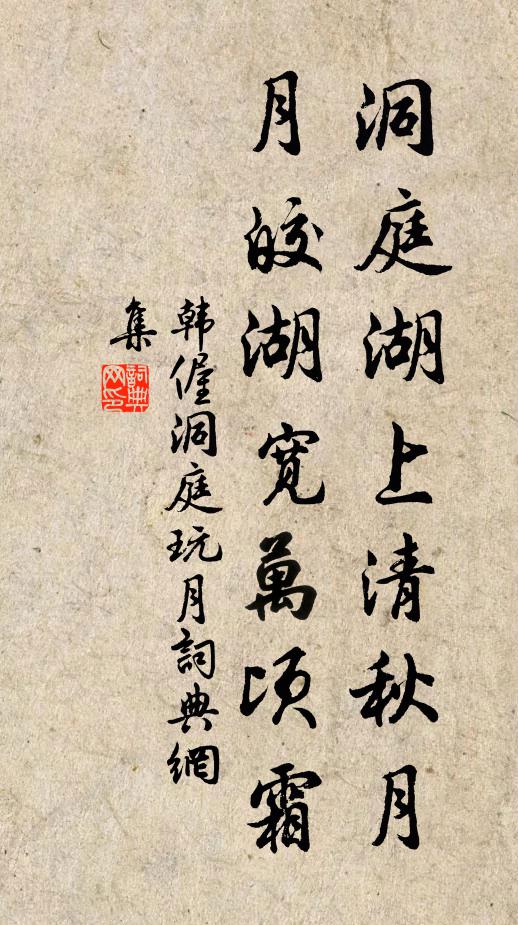 洞庭湖上清秋月
月皎湖寬萬頃霜
韩偓洞庭玩月詞典網
集
詞典
网印